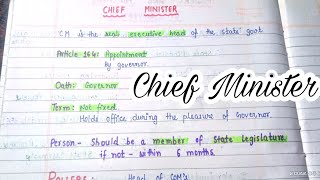 CHIEF MINISTER
CM is the real executive head of the state govt
Article 164: Appointment
by governor.
Oath: Governor
Term: Not fixed
Holds office during the pleasure of Governor.
Person- Should be a member of State legislature
if not - within 6 months
Head of COM's
Chief Minister